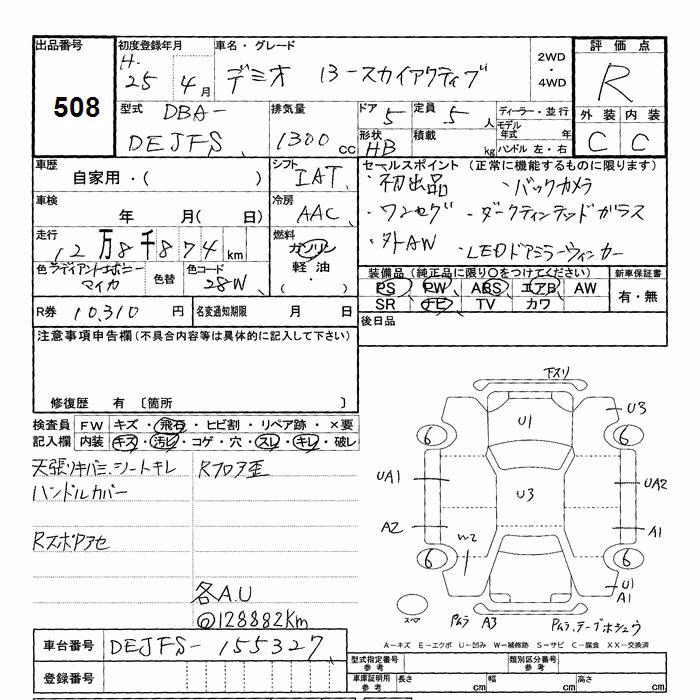 出品番号 508
初度登録年月 H. 25年 4月
車名・グレード デミオ 13-スカイアクティブ
2WD・4WD
評価点 R
外装 C 内装 C
型式 DBA- DEJFS
排気量 1300 cc
ドア 5 定員 5人
形状 HB 積載 kg
ディーラー・並行
モデル年式 年
ハンドル 左・右
車歴 自家用・( )
シフト IAT
車検 年 月( 日)
冷房 AAC
走行 12万8千874km
燃料 ガソリン 軽油 ・( )
色 ラディアントエボニーマイカ 色替 色コード 28W
セールスポイント (正常に機能するものに限ります)
・初出品 ・バックカメラ
・ワンセグ ・ダークティンテッドガラス
・外AW ・LEDドアミラーウィンカー
装備品 (純正品に限り○をつけてください) 新車保証書
PS PW ABS エアB AW 有・無
SR ナビ TV カワ
R券 10,310円 名変通知期限 月 日
後日品
注意事項申告欄(不具合内容等は具体的に記入して下さい)
修復歴 有 〔箇所 〕
検査員 FW キズ・飛石・ヒビ割・リペア跡・×要
記入欄 内装 キズ・汚レ・コゲ・穴・スレ・キレ・破レ
天張リキバミ、シートキレ Rフロア歪
ハンドルカバー
Rスポアセ
各A.U
◎128882Km
下スリ
U1 U3
6 6
UA1 U3 UA2
A2 W2 A1
6 6
U1
A1
スペア PムラA3 Pムラ、テープホシュウ
A-キズ E-エクボ U-凹み W-補修跡 S-サビ C-腐食 XX-交換済
車台番号 DEJFS-155327
型式指定番号 参考 類別区分番号 参考
登録番号
車庫証明用 参考 長さ cm 幅 cm 高さ cm